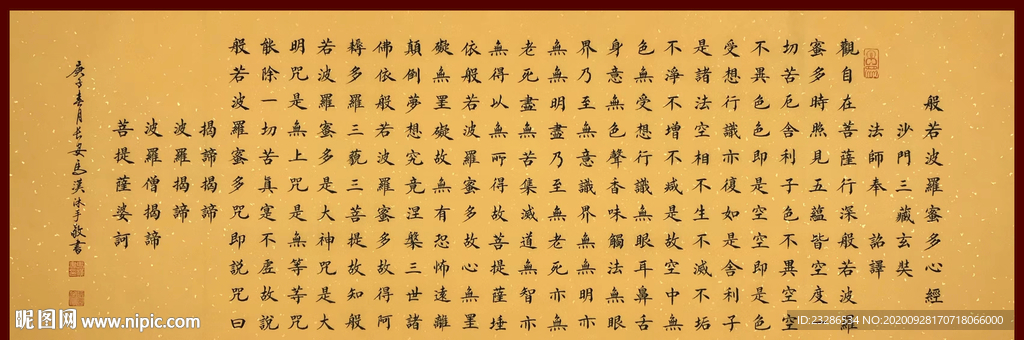 般若波羅蜜多心經
沙門三藏玄奘
法師奉 詔譯
觀自在菩薩行深般若波羅
蜜多時照見五蘊皆空度一
切苦厄舍利子色不異空空
不異色色即是空空即是色
受想行識亦復如是舍利子
是諸法空相不生不滅不垢
不淨不增不減是故空中無
色無受想行識無眼耳鼻舌
身意無色聲香味觸法無眼
界乃至無意識界無無明亦
無無明盡乃至無老死亦無
老死盡無苦集滅道無智亦
無得以無所得故菩提薩埵
依般若波羅蜜多故心無罣
礙無罣礙故無有恐怖遠離
顛倒夢想究竟涅槃三世諸
佛依般若波羅蜜多故得阿
耨多羅三藐三菩提故知般
若波羅蜜多是大神咒是大
明咒是無上咒是無等等咒
能除一切苦真寔不虛故說
般若波羅蜜多咒即說咒曰
揭諦揭諦
波羅揭諦
波羅僧揭諦
菩提薩婆訶
庚子春月長安馬漢沐手敬書
昵图网 www.nipic.com
ID:23286534 NO:20200928170718066000